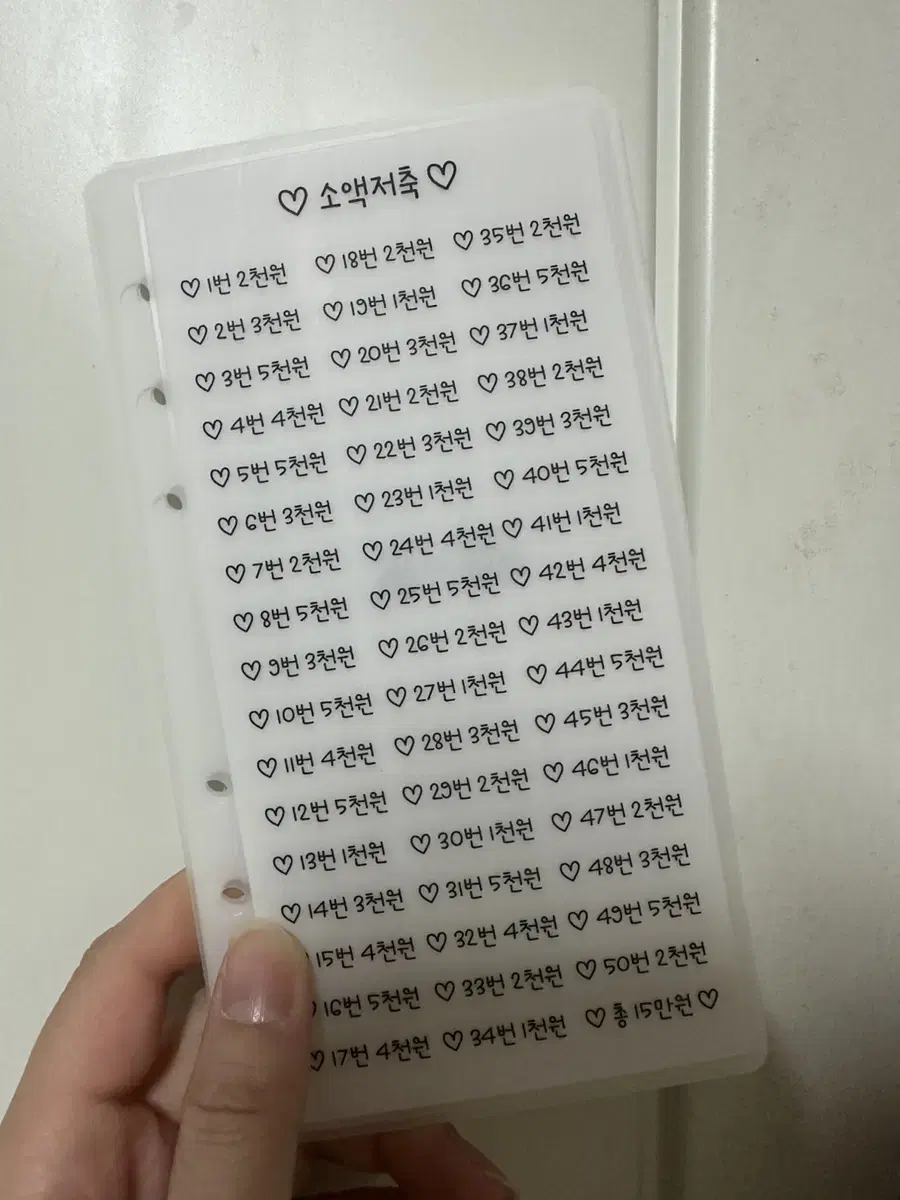 ♡ 소액저축 ♡
♡ 1번 2천원
♡ 2번 3천원
♡ 3번 5천원
♡ 4번 4천원
♡ 5번 5천원
♡ 6번 3천원
♡ 7번 2천원
♡ 8번 5천원
♡ 9번 3천원
♡ 10번 5천원
♡ 11번 4천원
♡ 12번 5천원
♡ 13번 1천원
♡ 14번 3천원
15번 4천원
♡ 16번 5천원
♡ 17번 4천원
♡ 18번 2천원
♡ 19번 1천원
♡ 20번 3천원
♡ 21번 2천원
♡ 22번 3천원
♡ 23번 1천원
♡ 24번 4천원
♡ 25번 5천원
♡ 26번 2천원
♡ 27번 1천원
♡ 28번 3천원
♡ 29번 2천원
♡ 30번 1천원
♡ 31번 5천원
♡ 32번 4천원
♡ 33번 2천원
♡ 34번 1천원
♡ 35번 2천원
♡ 36번 5천원
♡ 37번 1천원
♡ 38번 2천원
♡ 39번 3천원
♡ 40번 5천원
♡ 41번 1천원
♡ 42번 4천원
♡ 43번 1천원
♡ 44번 5천원
♡ 45번 3천원
♡ 46번 1천원
♡ 47번 2천원
♡ 48번 3천원
♡ 49번 5천원
♡ 50번 2천원
♡ 총 15만원 ♡